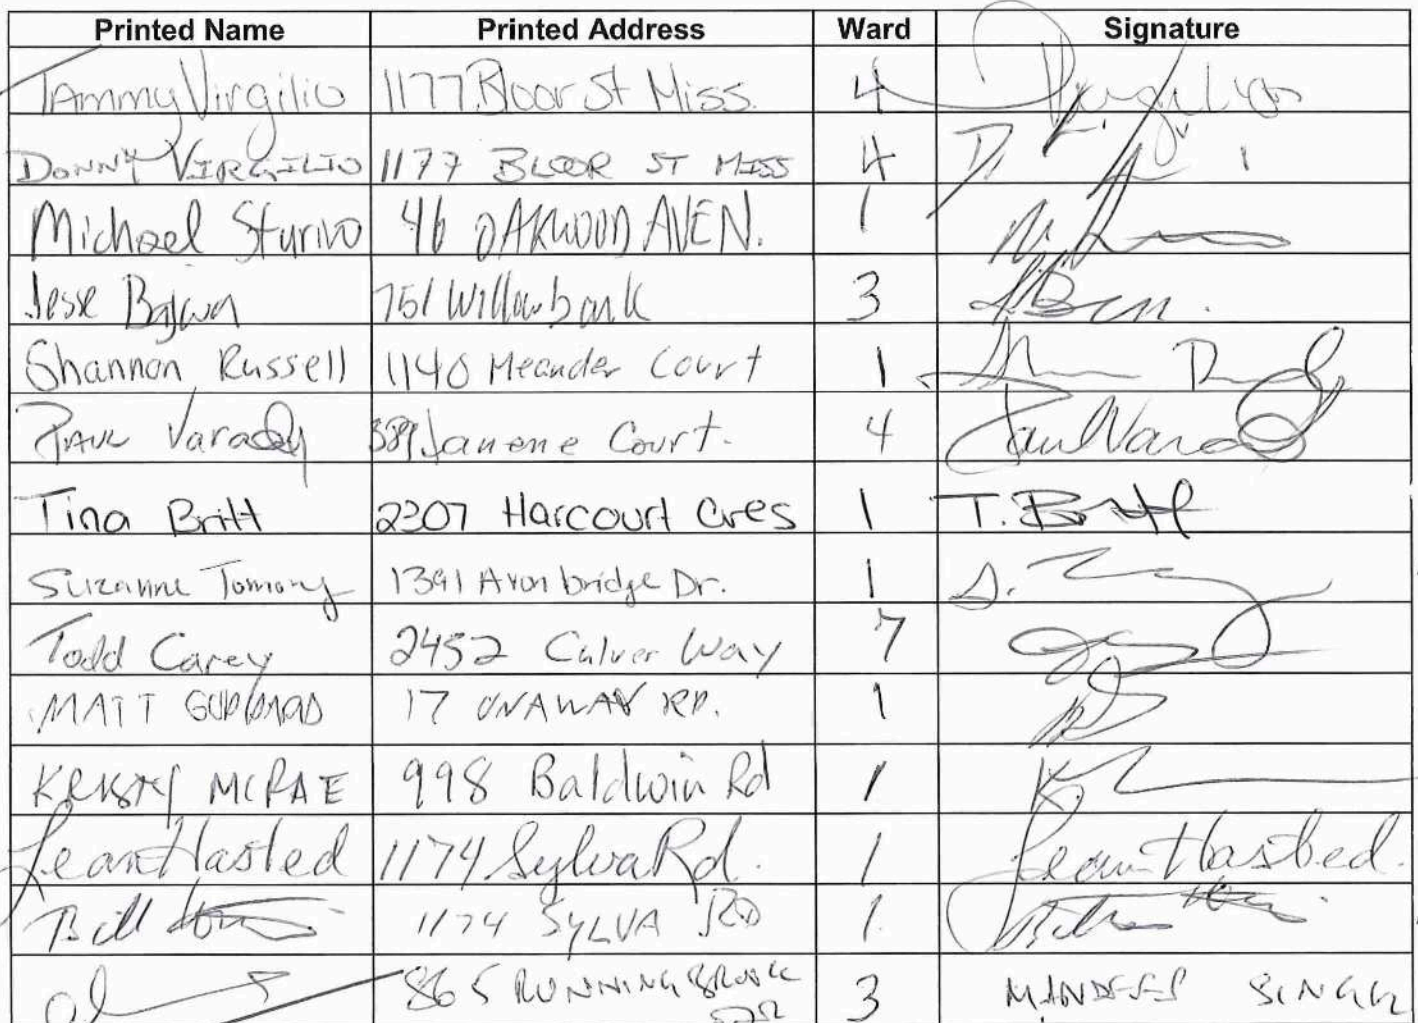 Printed Name Printed Address Ward Signature
Tammy Virgilio 1177 Bloor St Miss. 4 Virgilio
DONNY VIRGILIO 1177 BLOOR ST MISS 4 D.
Michael Sturino 46 OAKWOOD AVEN. 1 M.
Jesse Bajwa 751 Willowbank 3
Shannon Russell 1140 Meander Court 1
PAUL Varady 389 Janene Court. 4 Paul Varady
Tina Britt 2307 Harcourt Cres 1 T. Britt
Suzanne Tomony 1391 Avonbridge Dr. 1 S.
Todd Carey 2452 Culver Way 7
MATT 17 ONAWAY RD. 1
KRISTY MCRAE 998 Baldwin Rd 1 K.
Leann Hasted 1174 Sylva Rd. 1 Leann Hasted.
Bill 1174 SYLVA RD 1
865 RUNNINGBROOK 3 MANDEEP SINGH